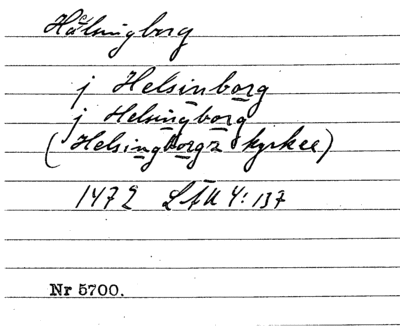 Hälsingborg
j Helsinborg
j Helsingborg
(Helsingborgz kyrkee)
1472 LfU 4:137
Nr 5700.